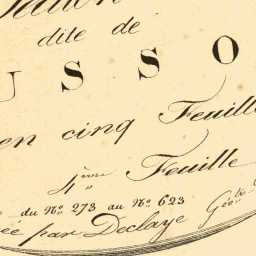 dite de
USSO
en cinq Feuille
4ème Feuille
du No. 273 au No. 623
ée par Declaye Géo